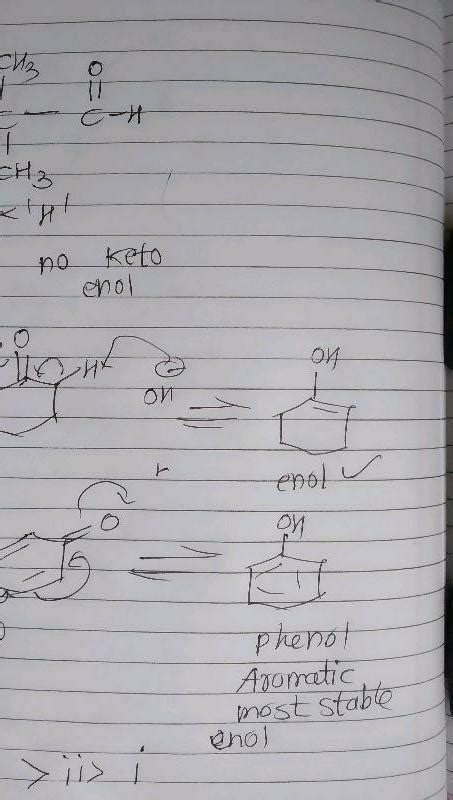 CH3 O
C — C-H
CH3
<'H'
no keto
enol
O
H OH
OH
enol ✓
O
OH
phenol
Aromatic
most stable
enol
> ii > i